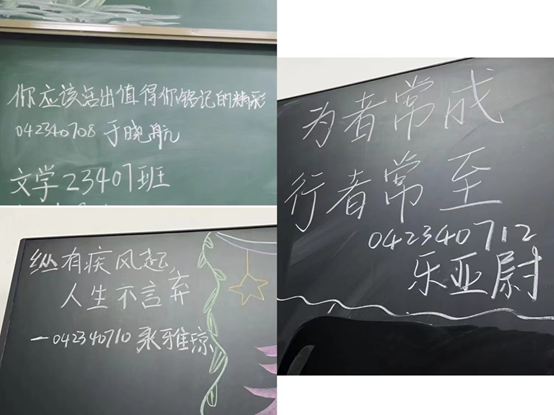 你应该活出值得你铭记的精彩
042340708 于晓航
文学23407班
纵有疾风起
人生不言弃
—042340710 雅琼
为者常成
行者常至
042340712
乐亚尉